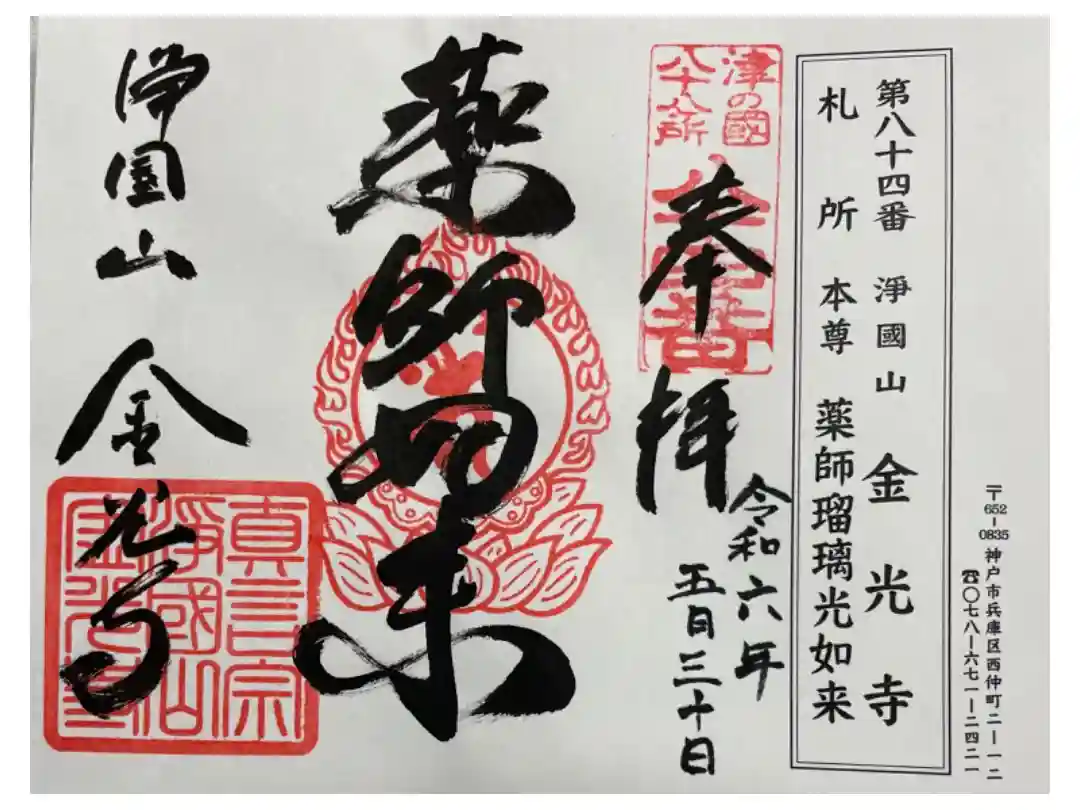 〒652-0835 神戸市兵庫区西仲町二ー一二
☎〇七八ー六七一ー二四二一
第八十四番 淨國山 金光寺
札所本尊 薬師瑠璃光如来
津の國
八十八所
第八十四番
奉拝
令和六年
五月三十日
薬師如来
淨國山 金光寺
真言宗
淨國山
金光寺